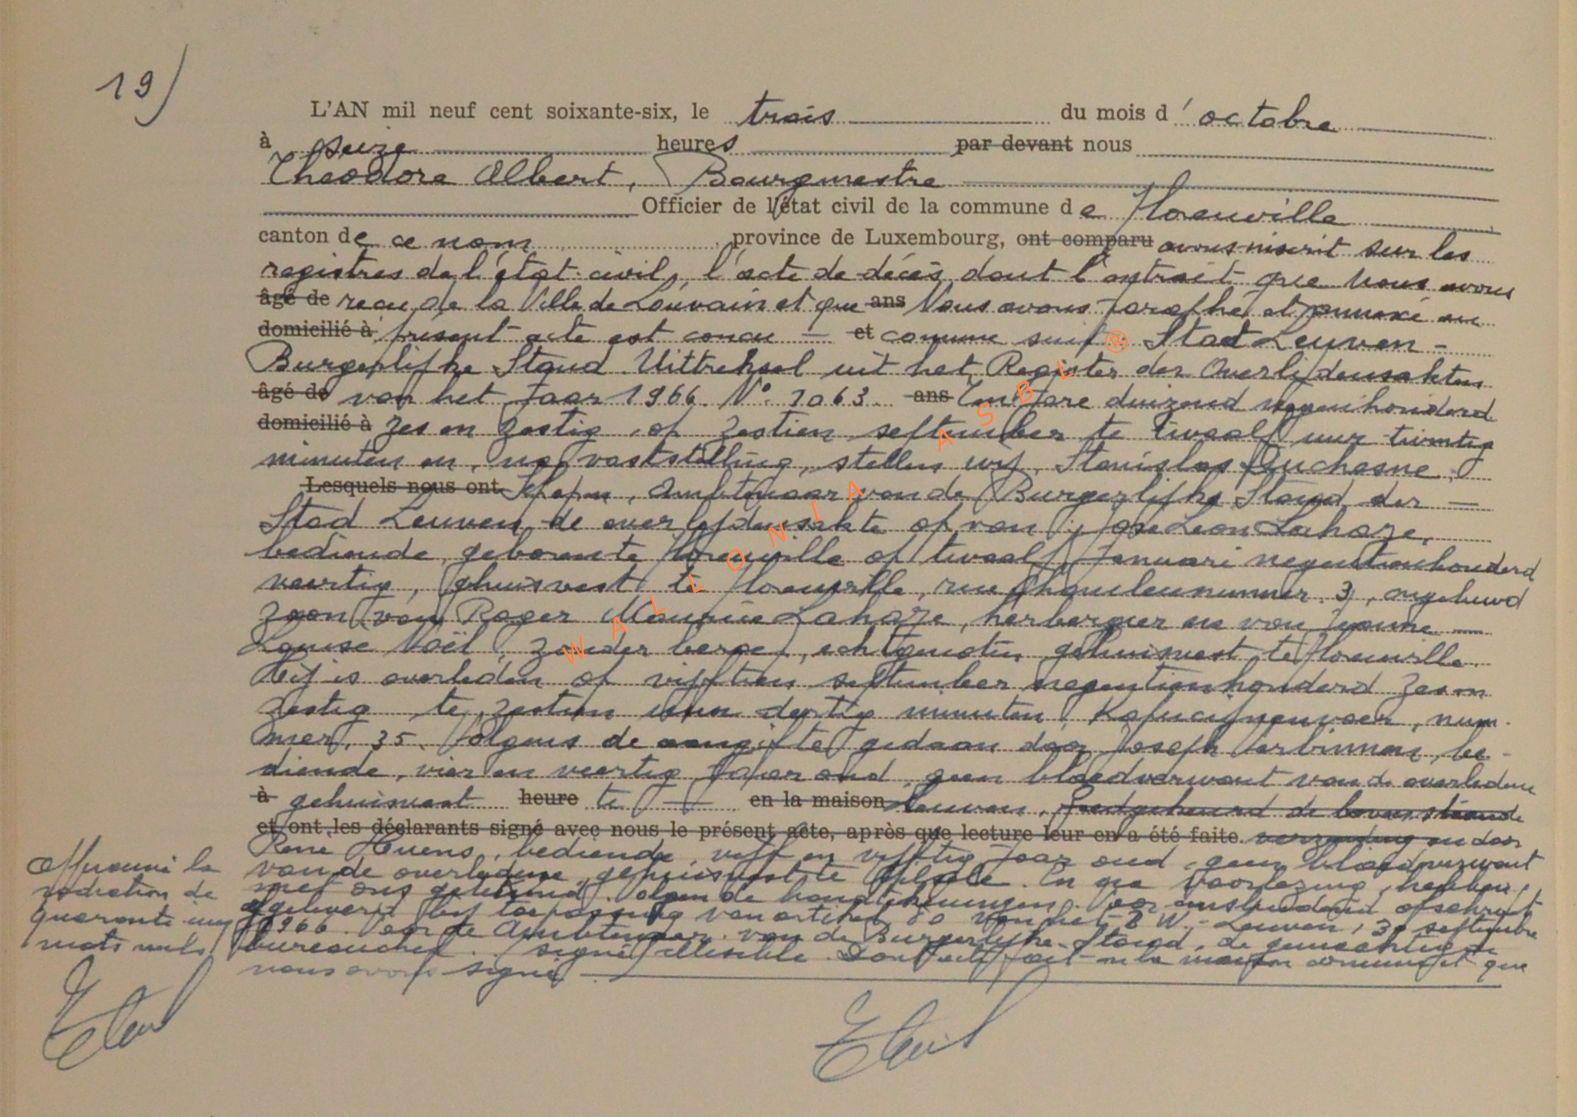 19)
L'AN mil neuf cent soixante-six, le trois du mois d'octobre
à seize heures par devant nous
Théodore Albert, Bourgmestre
Officier de l'état civil de la commune de Florenville
canton de ce nom province de Luxembourg, ont comparu avons inscrit sur les
registres de l'état civil, l'acte de décès dont l'extrait que nous avons
âgé de reçu de la Ville de Louvain et que ans Nous avons paraphé et annexé au
domicilié à présent acte est concu - et comme suit Stad Leuven -
Burgerlijke Stand Uittreksel uit het Register der Overlijdensakten
âgé de van het Jaar 1966. N° 1063. ans Ten Jare duizend negenhonderd
domicilié à zes en zestig, op zestien september te twaalf uur twintig
minuten en, na vaststelling, stellen wij, Stanislas Duchesne,
Lesquels nous ont Schepen, Ambtenaar van de Burgerlijke Stand der -
Stad Leuven, de overlijdensakte op van: José Léon Lahaye,
bediende, geboren te Florenville op twaalf Januari negentienhonderd
veertig, gehuisvest te Florenville, rue nummer 3, ongehuwd
zoon van Roger Maurice Lahaye, herbergier en van Yvonne
Louise Noël, zonder beroep, echtgenoten gehuisvest te Florenville.
Hij is overleden op vijftien september negentienhonderd zes en
zestig te zestien uur dertig minuten, Kapucijnenvoer, num-
mer, 35. Volgens de aangifte gedaan door Joseph be-
diende, vier en veertig jaar oud geen bloedverwant van de overledene
à gehuisvest heure te - en la maison Leuven,
et ont les déclarants signé avec nous le présent acte, après que lecture leur en a été faite. en door
René Huens, bediende, vijf en vijftig jaar oud, geen bloedverwant
van de overledene, gehuisvest te En na voorlezing, hebben
met ons getekend. Volgen de handtekeningen. Voor eensluidend afschrift
afgeleverd bij toepassing van artikel 80 van het B.W. Leuven, 30 september
1966. Voor de Ambtenaar van de Burgerlijke Stand, de gemachtigde
bureauchef. (signé) illisible. Dont acte fait en la maison communale et que
nous avons signé
Approuvé la
radiation de
quarante
mots nuls
WALLONIA ASBL ®